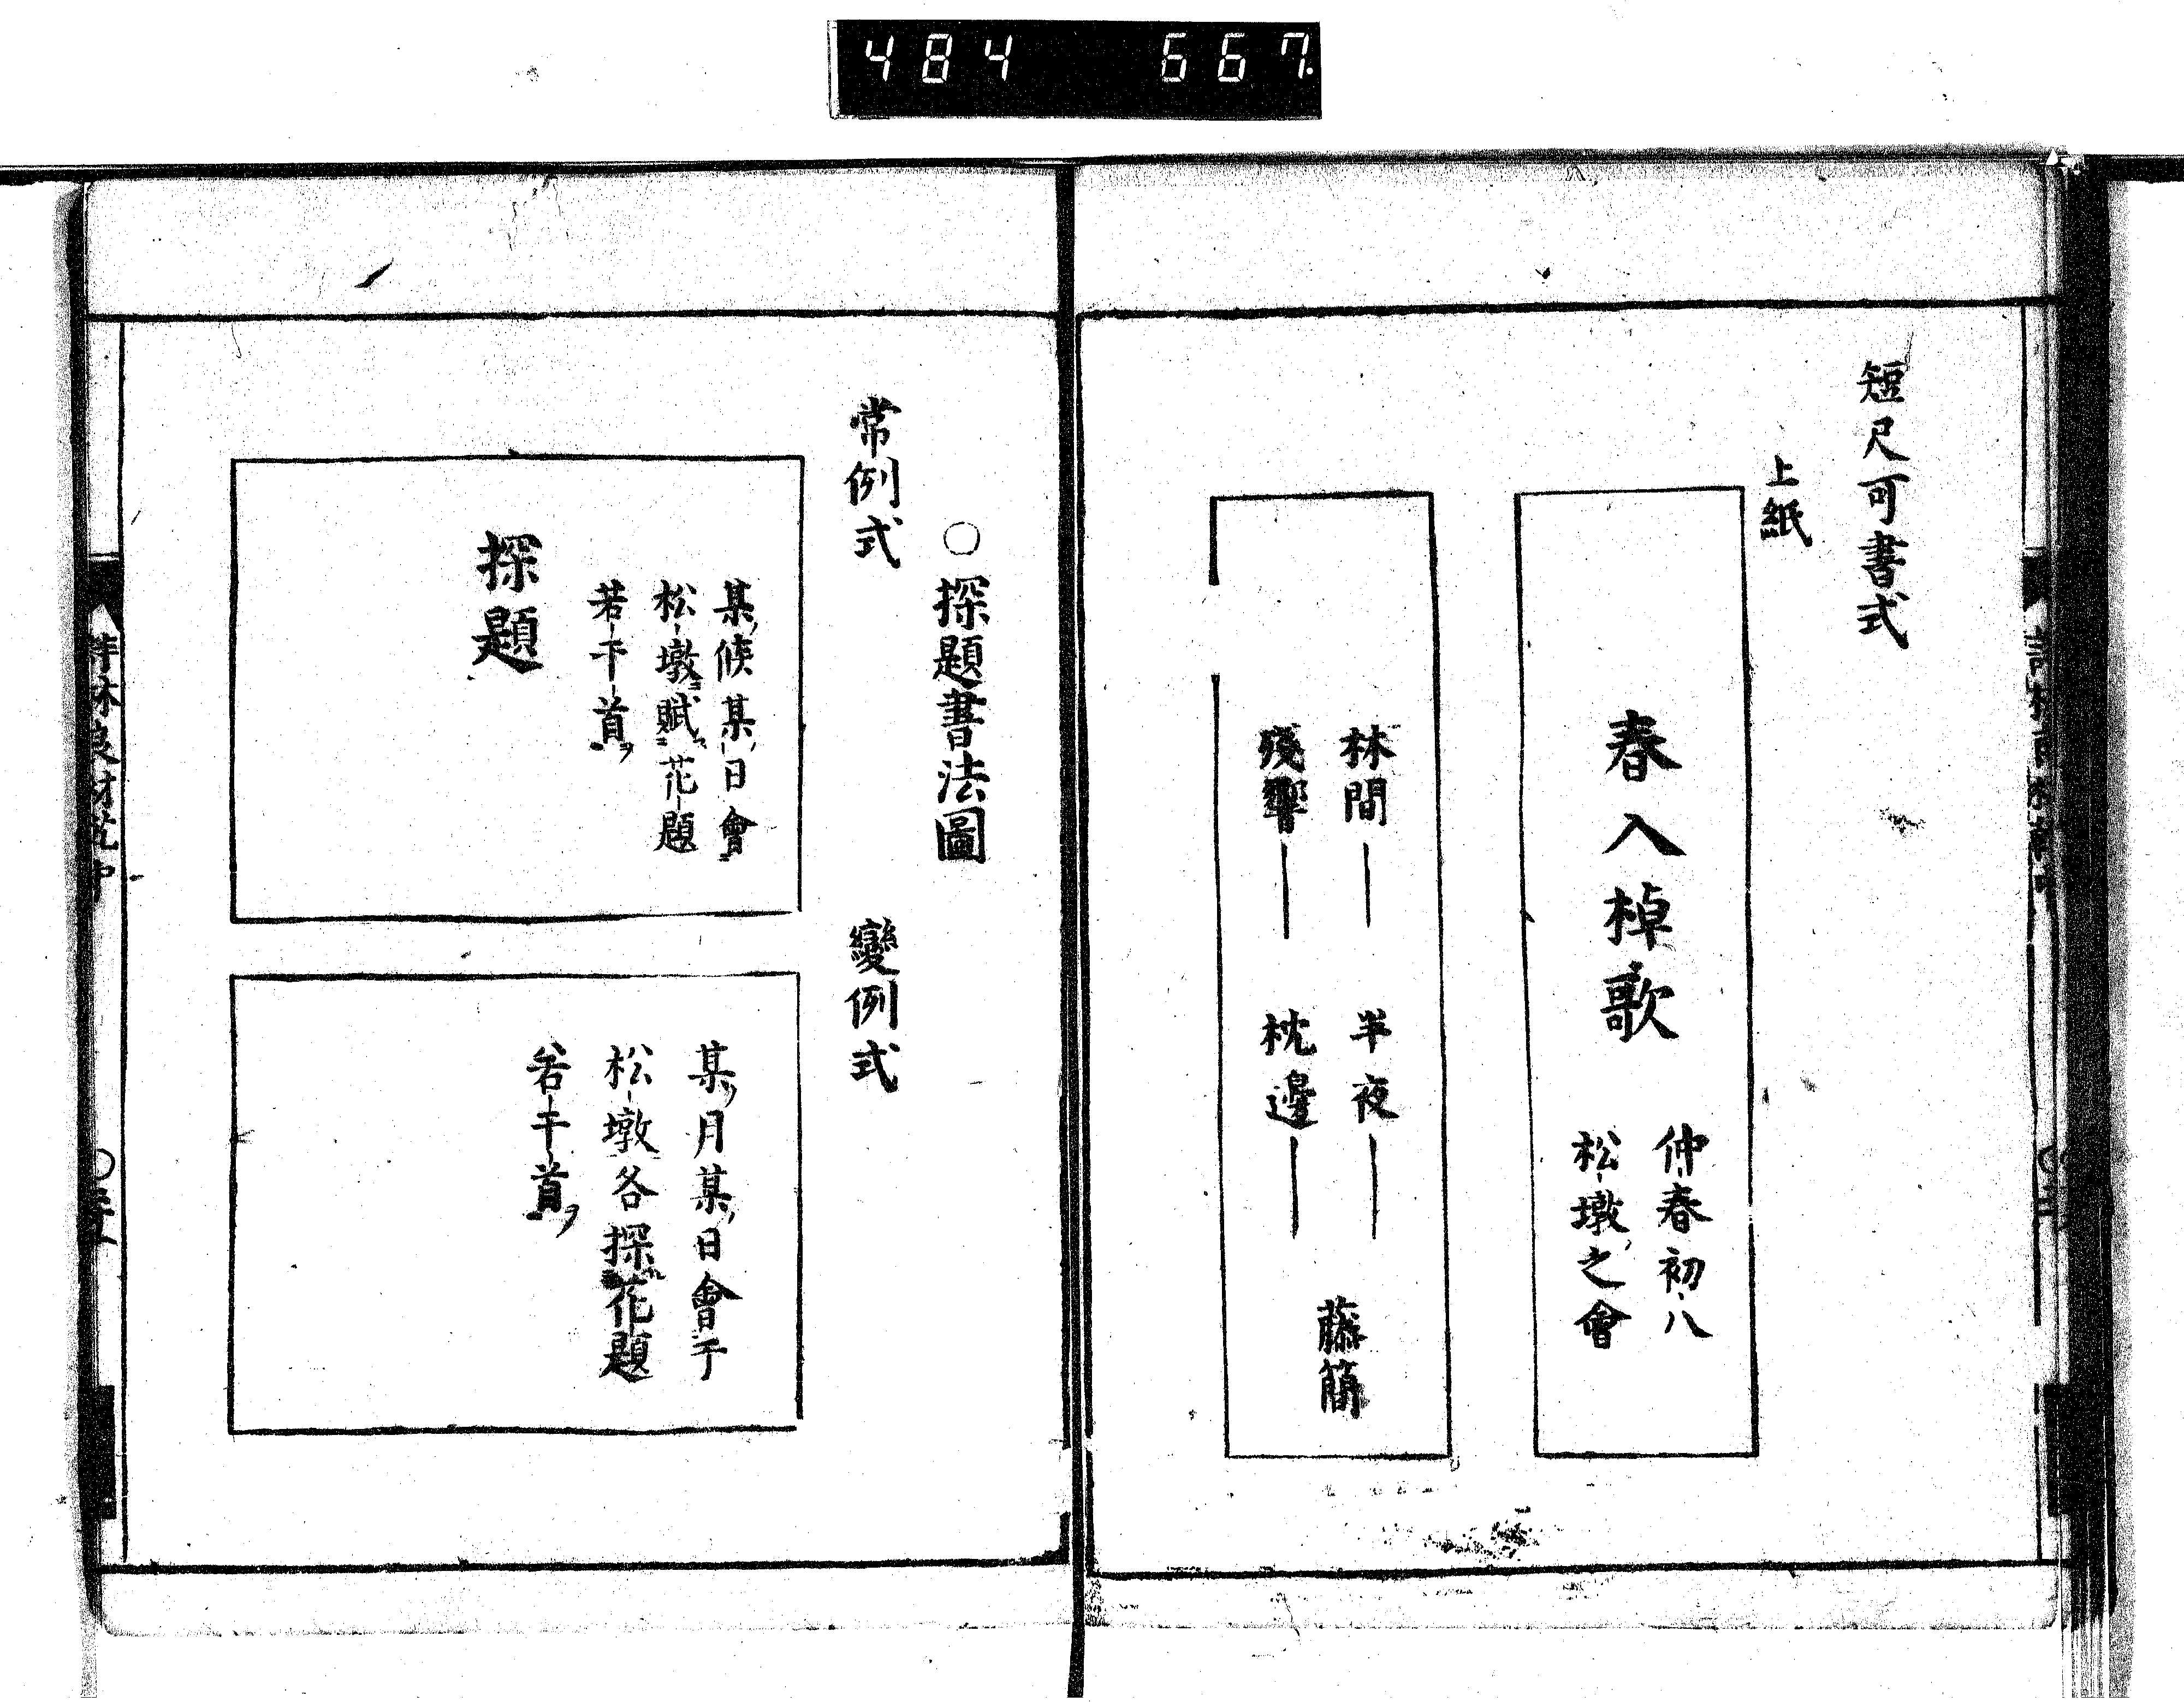 484 667.
短尺可書式
上紙
春入棹歌
仲春初八
松墩之會
林間 半夜
殘響 枕邊
藤簡
○探題書法圖
常例式
某候某日會
松墩賦花題
若干首
探題
變例式
某月某日會于
松墩各探花題
若干首